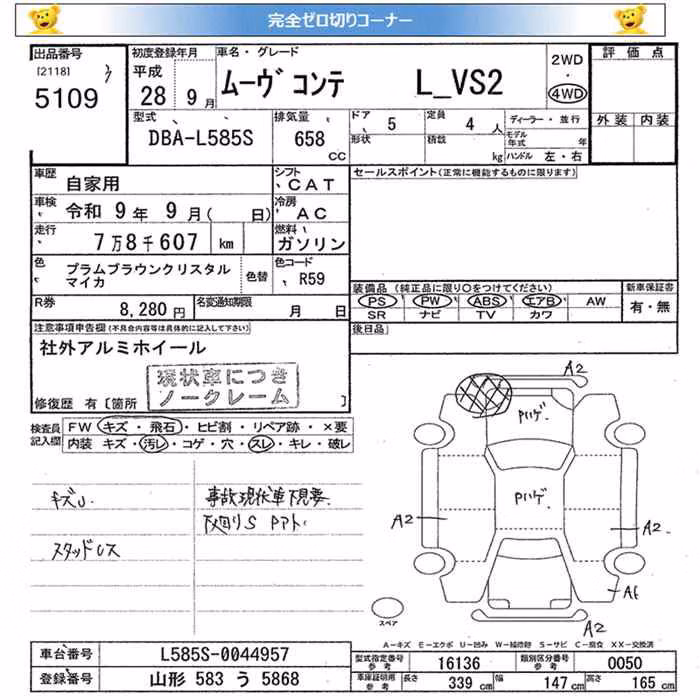 完全ゼロ切りコーナー
出品番号 初度登録年月 車名・グレード 2WD・4WD 評価点
[2118] 3
5109
平成 28年 9月
ムーヴ コンテ L_VS2
型式 DBA-L585S
排気量 658 CC
ドア 5
形状
定員 4人
積載 kg
ディーラー・並行
モデル年式 年
ハンドル 左・右
外装 内装
車歴 自家用
シフト CAT
セールスポイント(正常に機能するものに限ります)
車検 令和 9年 9月( 日)
冷房 AC
走行 7万8千607 km
燃料 ガソリン
色 プラムブラウンクリスタルマイカ
色替
色コード R59
装備品 (純正品に限り○をつけてください)
新車保証書
PS PW ABS エアB AW
有・無
SR ナビ TV カワ
R券 8,280円
名変通知期限 月 日
後日品
注意事項申告欄(不具合内容等は具体的に記入して下さい)
社外アルミホイール
現状車につき
ノークレーム
修復歴 有[箇所 ]
検査員記入欄
FW キズ・飛石・ヒビ割・リペア跡・×要
内装 キズ・汚レ・コゲ・穴・スレ・キレ・破レ
キズU
事故現状車下見要
下廻りS Pアト
スタッドレス
A2
Pハゲ
Pハゲ
A2
A2
A6
A2
スペア
A-キズ E-エクボ U-凹み W-補修跡 S-サビ C-腐食 XX-交換済
車台番号 L585S-0044957
登録番号 山形 583 う 5868
型式指定番号 参考 16136
類別区分番号 参考 0050
車庫証明用 参考 長さ 339 cm 幅 147 cm 高さ 165 cm